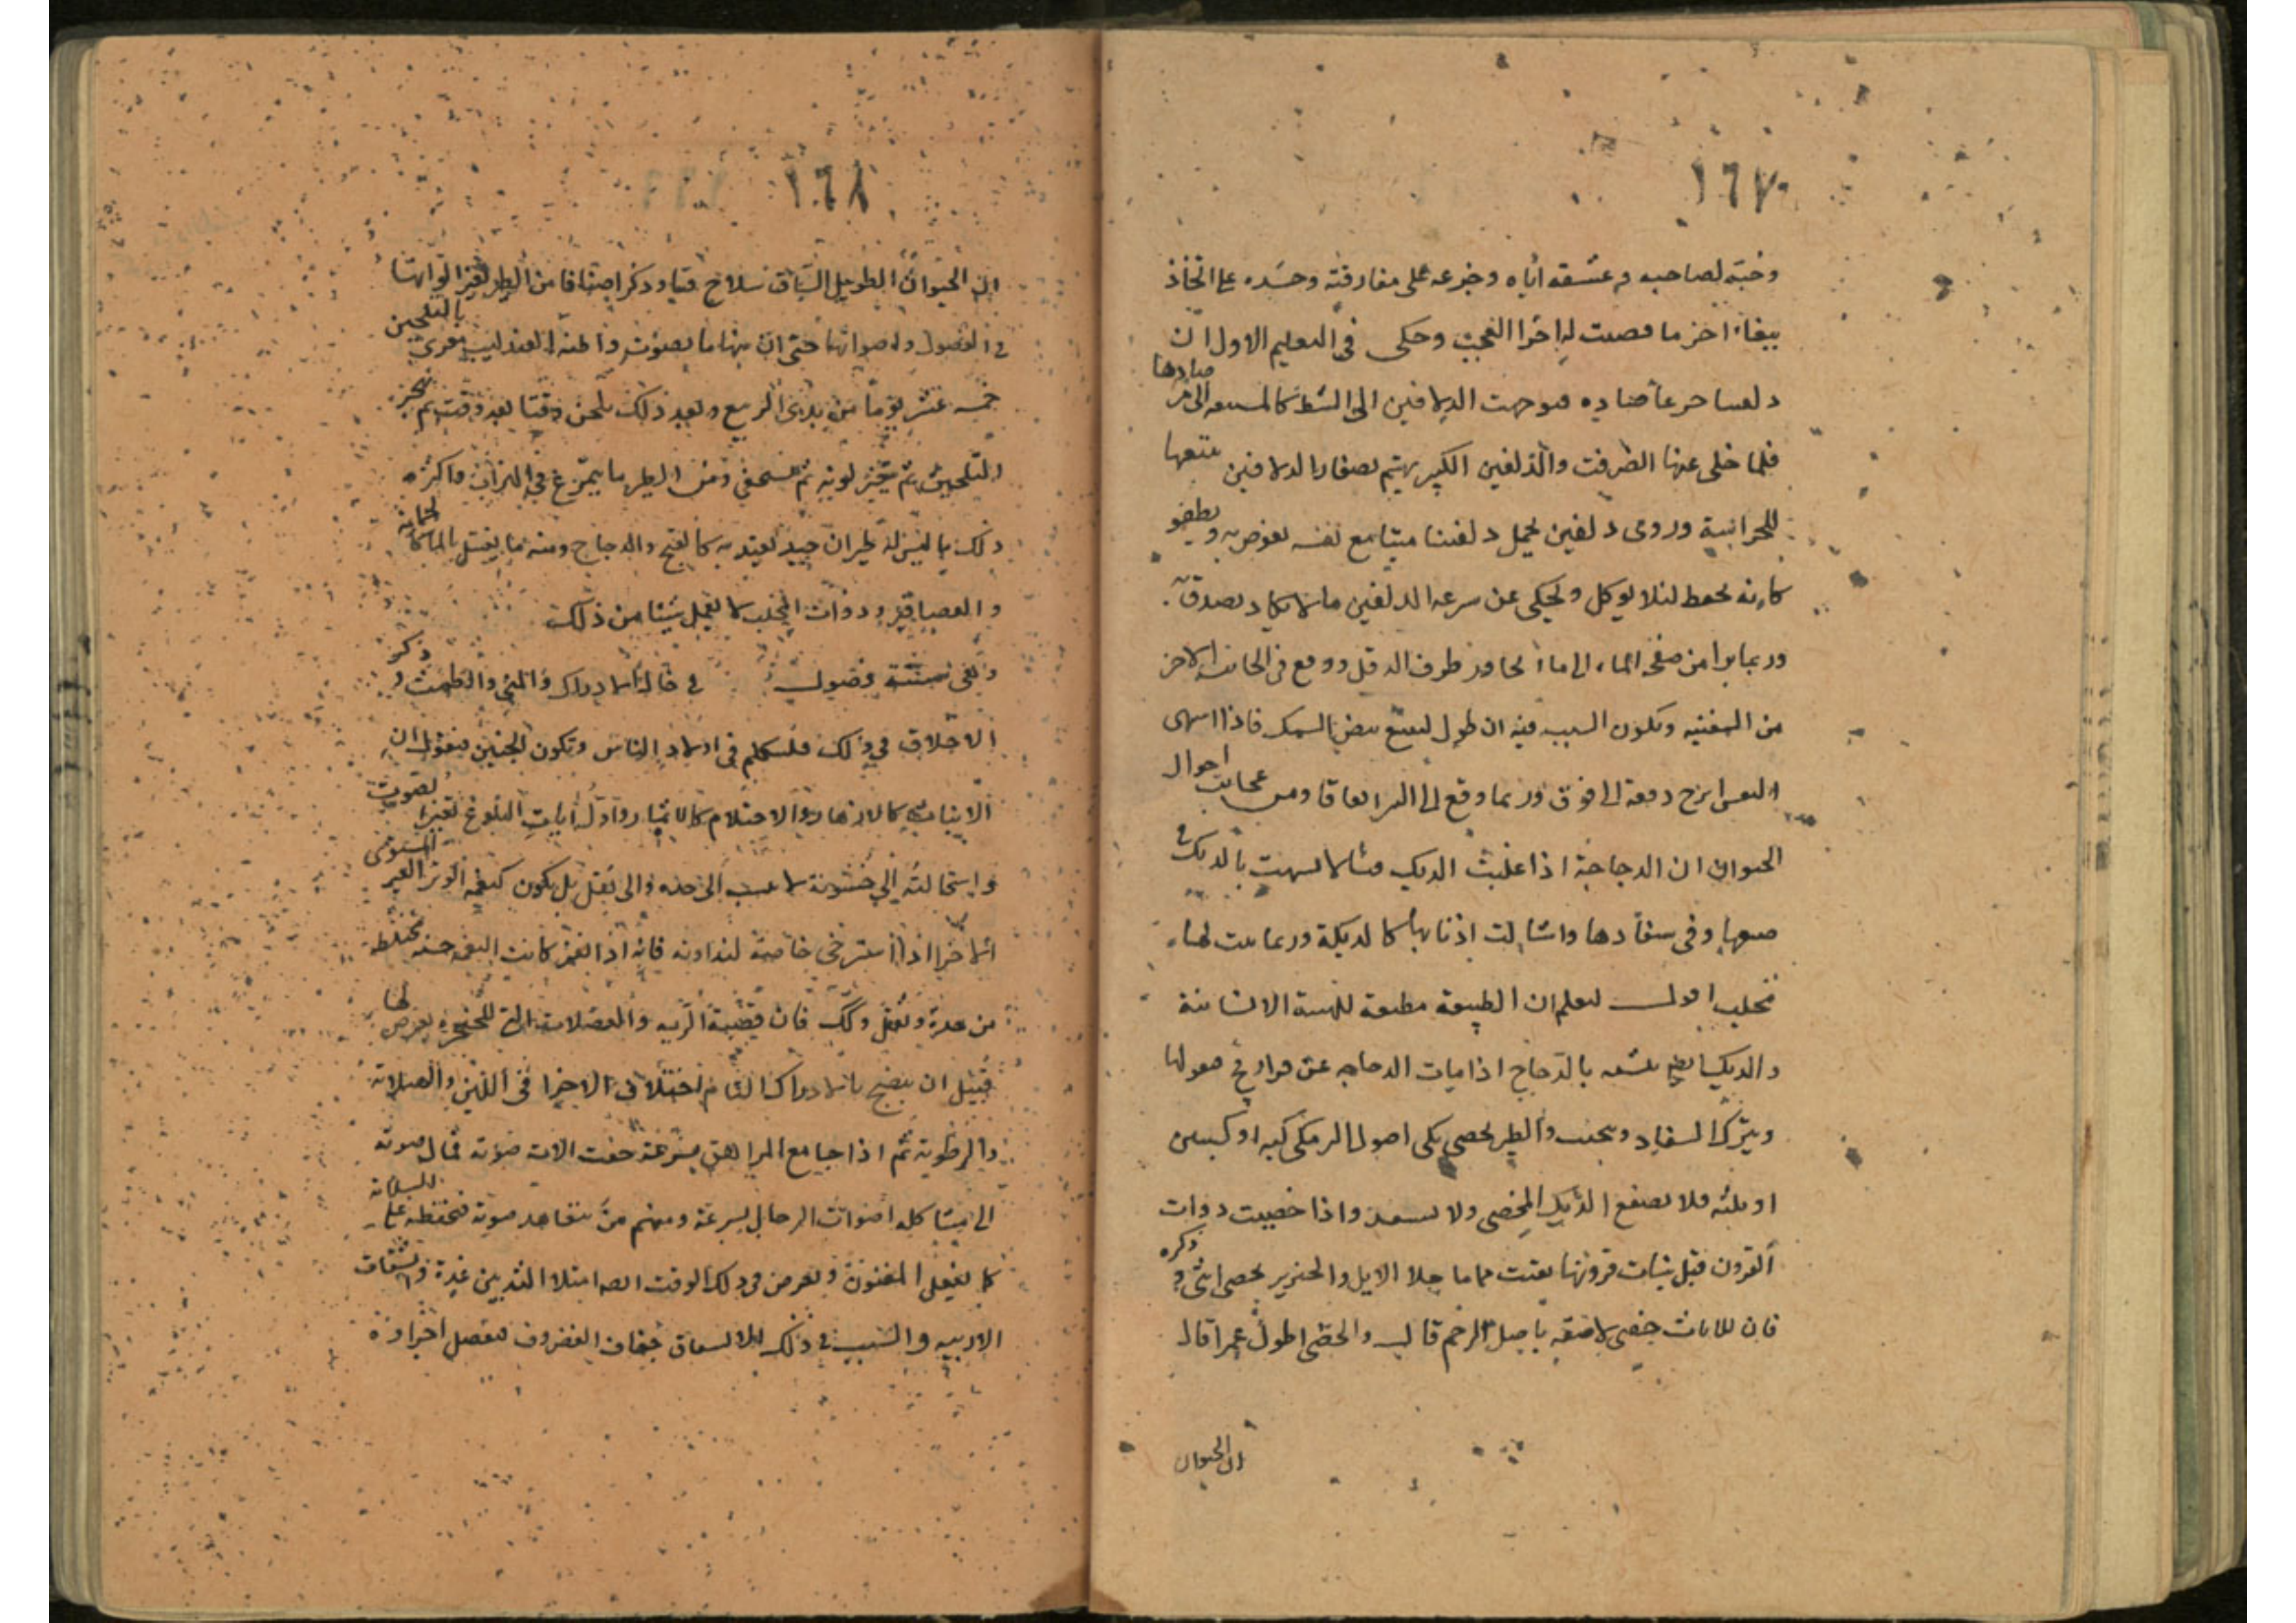 ١٦٧
وحبه لصاحبه وعشقه اياه وجزعه على مفارقته وحسده على اتخاذ
ببغاء اخر ما قصيت له اخرا العجب وحكى فى التعليم الاول ان
دلفينا جرعا صاده فتوجهت الدلافين الى الشط كالمستعه الى من صادها
فلما خلى عنها انصرفت والدلفين الكبير يهتم بصغار الدلافين يتبعها
للحراسة وروى دلفين يحمل دلفينا ميتا مع نفسه يغوص به ويطفو
كانه يحفظ لئلا يوكل ويحكى عن سرعه الدلفين ما لا يكاد يصدق
وربما برا من صفحه الماء الى ما يحاوز طرف الدقل ووقع فى الجانب الاخر
من السفينه ويكون السبب فيه ان طول ليتبع بعض السمك فاذا اشتهى
النفس ابزج دفعة الى فوق وربما وقع الى البر اتفاقا ومن عجائب احوال
الحيوان ان الدجاجة اذا غلبت الديك مثالا تشبهت بالديك فى
صوتها وفى سفادها واشالت اذنابها كالديكة وربما نبت لها
مخلب اقول ليعلم ان الطبيعة مطيعة للهيئة الانسانية
والديك ايضا يتشبه بالدجاج اذا مات الدجاجه عن فراريج فعولها
ويترك السفاد ويجنب والطير يخصى بكى اصول الزمكى كيه او كيتين
او ثلثه فلا يصقع الديك المخصى ولا يسفد واذا خصيت ذوات
القرون قبل نبات قرونها بقيت جماما خلا الايل والخنزير يخصى انثى وذكره
فان للاناث خصى لاصقه باصل الرحم قال والخصى اطول عمرا قال
ان الحيوان
١٦٨
ان الحيوان الطويل الساق سلاح قيا وذكر اصنافا من الطير تغير الوانها
فى الفصول واصواتها حتى ان منها ما يصوت واظنه العندليب يغرى بالتلحين
خمسه عشر يوما من بدئ الربيع وبعد ذلك يلحن وقتا بعد وقت ثم يهجر
التلحين ثم يتغير لونه ثم يستخفى ومن الطير ما يتمرغ فى التراب واكثره
ذلك ما ليس له طيران جيد يعتد به كالقبج والدجاج ومنه ما يغتسل بالماء كالحمامة
والعصافير وذوات المخلب لا تفعل شيئا من ذلك
وهى ستة فصول فى حال الادراك والمنى والطمث وذكر
الاختلاف فى ذلك فلنتكلم فى اولاد الناس وتكون الجنين فنقول ان
الانبات كالازهار والاحتلام كالاثمار واول ايات البلوغ تغير الصوت
واستحالته الى خشونة لا ينسب الى حده والى ثقل بل يكون كنغمه الوتر الغير المستوى
الاخر اذا استرخى خاصة لنداوته فانه اذا نقر كانت النغمه خشنه مختلطه
من حدة وثقل وذلك فان قصبة الريه والعضلات التى للحنجره يعرض لها
قبيل ان ينضج بالادراك التام اختلاف الاجزا فى اللين والصلابه
والرطوبة ثم اذا جامع المراهق بسرعة جفت الات صوته فمال صوته
الى مشاكله اصوات الرجال بسرعة ومنهم من يتعاهد صوته فتحفظه على السلامه
كما يفعل المغنون ويعرض فى ذلك الوقت ايضا امتلا الثديين غدة وانشقاق
الاربيه والسبب فى ذلك الانشقاق جفاف الغضروف فتفصل اجزاوه